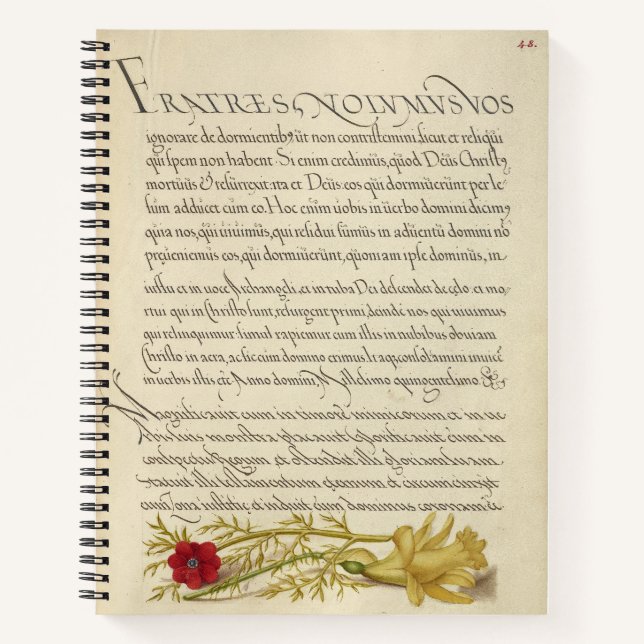 48.
FRATRES, NOLVMVS VOS
ignorare de dormientibꝰ, ut non contristemini, sicut et reliqui
qui spem non habent. Si enim credimus, quod Deus Christꝰ
mortuus & resurrexit: ita et Deus eos qui dormiuerunt per Ie
sum adducet cum eo. Hoc enim uobis in uerbo domini dicimꝰ,
quia nos, qui uiuimus, qui residui sumus in aduentu domini nō
preueniemus eos, qui dormiuerunt, quoniam ipse dominus, in
iussu et in uoce Archangeli, et in tuba Dei descendet de celo, et mor
tui qui in Christo sunt, resurgent primi, deinde nos qui uiuimus
qui relinquimur simul rapiemur cum illis in nubibus obuiam
Christo in aera, ac sic cum domino erimus. Itaque consolamini inuicē
in uerbis istis etc. Anno domini, Millesimo quingentesimo &
Magnificauit eum in timore inimicorum et in uer
bis suis monstra placauit Glorificauit eum in
conspectu regum et ostendit illi gloriam suam
illi et circumcinxit
eum Zona iustitiae, et induit eum dominus coronam